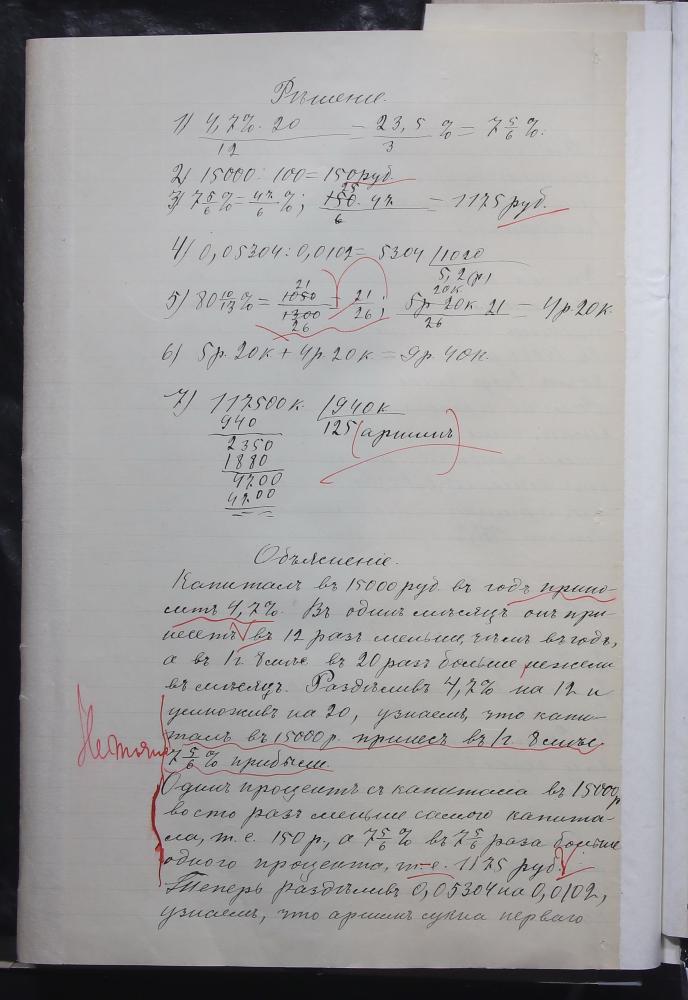 Рѣшеніе.
1) 4,7%. 20 / 12 = 23,5 / 3 % = 7 5/6 %.
2) 15000 : 100 = 150 руб.
3) 7 5/6 % = 47/6 %; 150 . 47 / 6 = 1175 руб.
25
4) 0,05304 : 0,0102 = 5304 / 1020
5,2 (р)
5) 80 10/13 % = 1050/1300 = 21/26; 5р. 20к. 21 / 26 = 4р. 20к.
21
26
20к
6) 5р. 20к + 4р. 20к. = 9р. 40к.
7) 117500к. / 940к
940 125 (аршинъ)
2350
1880
4700
4700
Объясненіе.
Капиталъ въ 15000 руб. въ годъ прино-
ситъ 4,7%. Въ одинъ мѣсяцъ онъ при-
несетъ въ 12 разъ меньше, чѣмъ въ годъ,
а въ 1г. 8 мѣс въ 20 разъ больше нежели
въ мѣсяцъ. Раздѣливъ 4,7% на 12 и
умноживъ на 20, узнаемъ, что капи-
талъ въ 15000р. принесъ въ 1г. 8 мѣс
7 5/6 % прибыли.
Не точно
Одинъ процентъ съ капитала въ 15000р
во сто разъ меньше самого капита-
ла, т. е. 150 р., а 7 5/6 % въ 7 5/6 раза больше
одного процента, т. е. 1175 руб.
Теперь раздѣливъ 0,05304 на 0,0102,
узнаемъ, что аршинъ сукна перваго